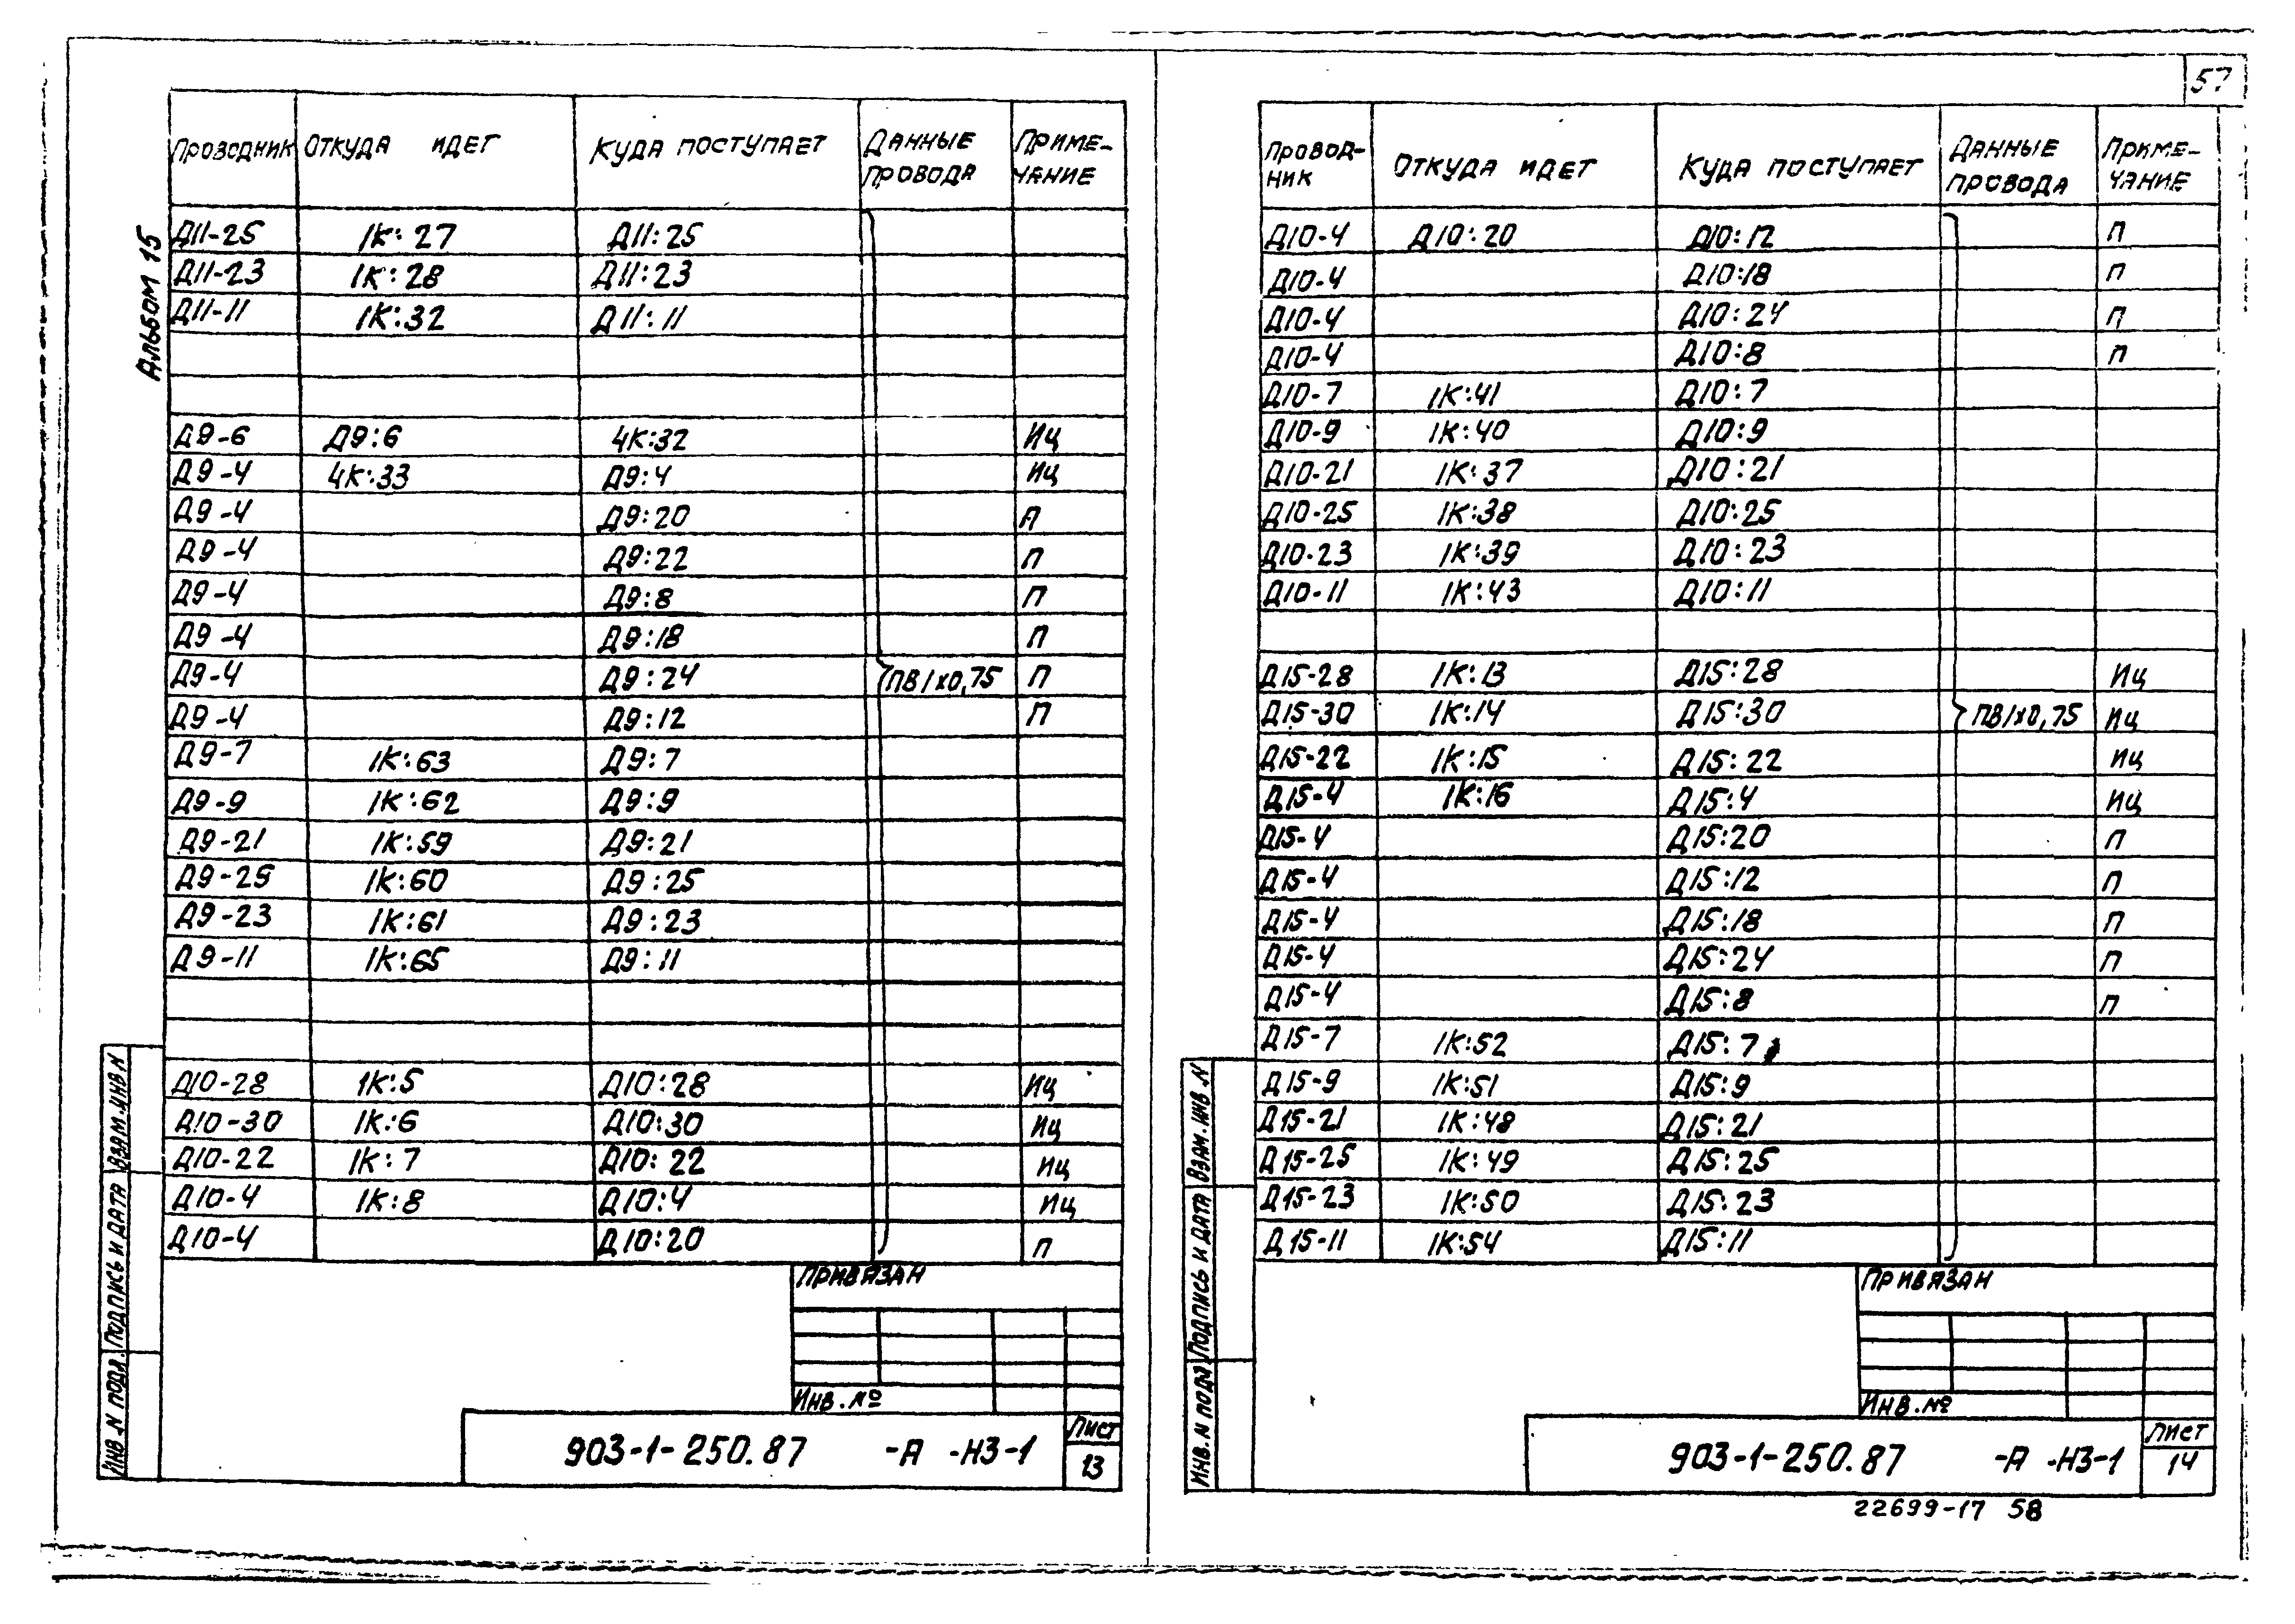 57
Альбом 15
Проводник Откуда идет Куда поступает Данные провода Приме-чание
Д11-25 1К:27 Д11:25
Д11-23 1К:28 Д11:23
Д11-11 1К:32 Д11:11
Д9-6 Д9:6 4К:32 Иц
Д9-4 4К:33 Д9:4 Иц
Д9-4 Д9:20 П
Д9-4 Д9:22 П
Д9-4 Д9:8 П
Д9-4 Д9:18 П
Д9-4 Д9:24 ПВ1х0,75 П
Д9-4 Д9:12 П
Д9-7 1К:63 Д9:7
Д9-9 1К:62 Д9:9
Д9-21 1К:59 Д9:21
Д9-25 1К:60 Д9:25
Д9-23 1К:61 Д9:23
Д9-11 1К:65 Д9:11
Д10-28 1К:5 Д10:28 Иц
Д10-30 1К:6 Д10:30 Иц
Д10-22 1К:7 Д10:22 Иц
Д10-4 1К:8 Д10:4 Иц
Д10-4 Д10:20 П
Привязан
Инв.№
903-1-250.87 -А -НЗ-1
Лист
13
Инв.N подл. Подпись и дата Взам.инв.N
Провод-ник Откуда идет Куда поступает Данные провода Приме-чание
Д10-4 Д10:20 Д10:12 П
Д10-4 Д10:18 П
Д10-4 Д10:24 П
Д10-4 Д10:8 П
Д10-7 1К:41 Д10:7
Д10-9 1К:40 Д10:9
Д10-21 1К:37 Д10:21
Д10-25 1К:38 Д10:25
Д10-23 1К:39 Д10:23
Д10-11 1К:43 Д10:11
Д15-28 1К:13 Д15:28 Иц
Д15-30 1К:14 Д15:30 ПВ1х0,75 Иц
Д15-22 1К:15 Д15:22 Иц
Д15-4 1К:16 Д15:4 Иц
Д15-4 Д15:20 П
Д15-4 Д15:12 П
Д15-4 Д15:18 П
Д15-4 Д15:24 П
Д15-4 Д15:8 П
Д15-7 1К:52 Д15:7
Д15-9 1К:51 Д15:9
Д15-21 1К:48 Д15:21
Д15-25 1К:49 Д15:25
Д15-23 1К:50 Д15:23
Д15-11 1К:54 Д15:11
Привязан
Инв.№
903-1-250.87 -А -НЗ-1
Лист
14
Инв.N подл Подпись и дата Взам.инв.N
22699-17 58